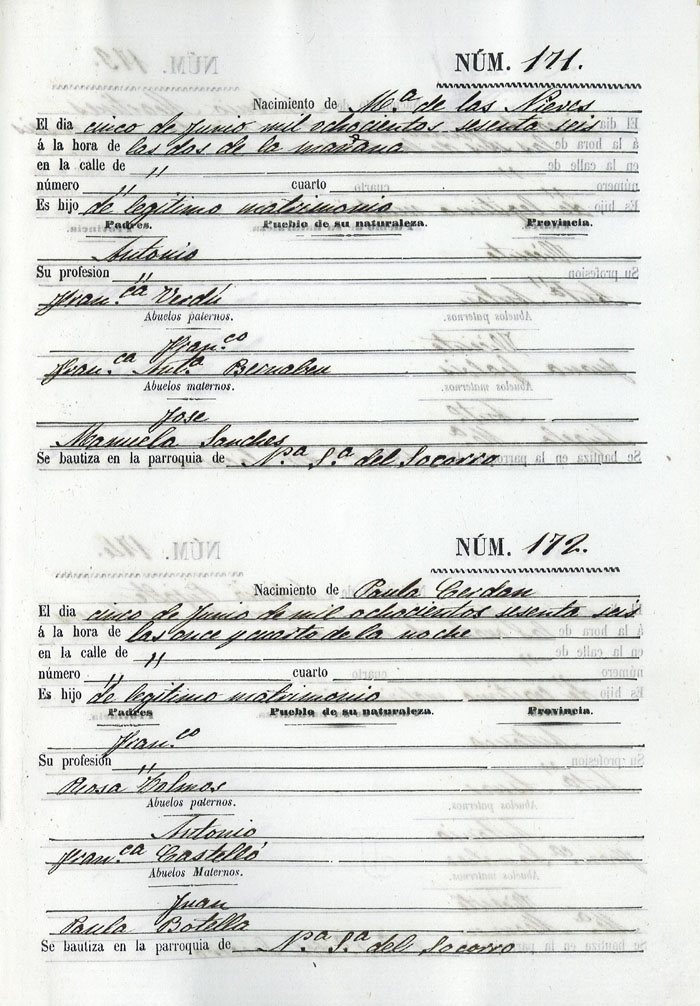 NÚM. 171.
Nacimiento de Mª de las Nieves
El dia cinco de Junio mil ochocientos sesenta seis
á la hora de las dos de la mañana
en la calle de "
número " cuarto
Es hijo de legítimo matrimonio
Padres. Pueblo de su naturaleza. Provincia.
Antonio
Su profesion "
Fran.ca Verdú
Abuelos paternos.
Fran.co
Fran.ca Ant.a Bernabeu
Abuelos maternos.
Jose
Manuela Sanches
Se bautiza en la parroquia de N.a S.a del Socorro
NÚM. 172.
Nacimiento de Paula Cerdan
El dia cinco de Junio de mil ochocientos sesenta seis
á la hora de las once y cuarto de la noche
en la calle de "
número " cuarto
Es hijo de legítimo matrimonio
Padres Pueblo de su naturaleza. Provincia.
Fran.co
Su profesión "
Rosa
Abuelos paternos.
Antonio
Fran.ca Castelló
Abuelos Maternos.
Juan
Paula Botella
Se bautiza en la parroquia de N.a S.a del Socorro